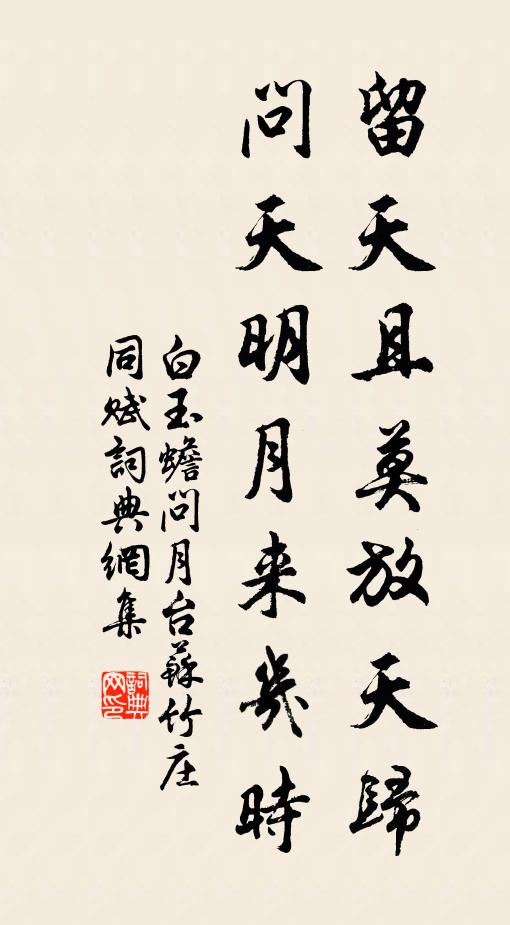 留天且莫放天歸
問天明月来幾時
白玉蟾問月台蘇竹庄
同賦詞典網集
詞典网印